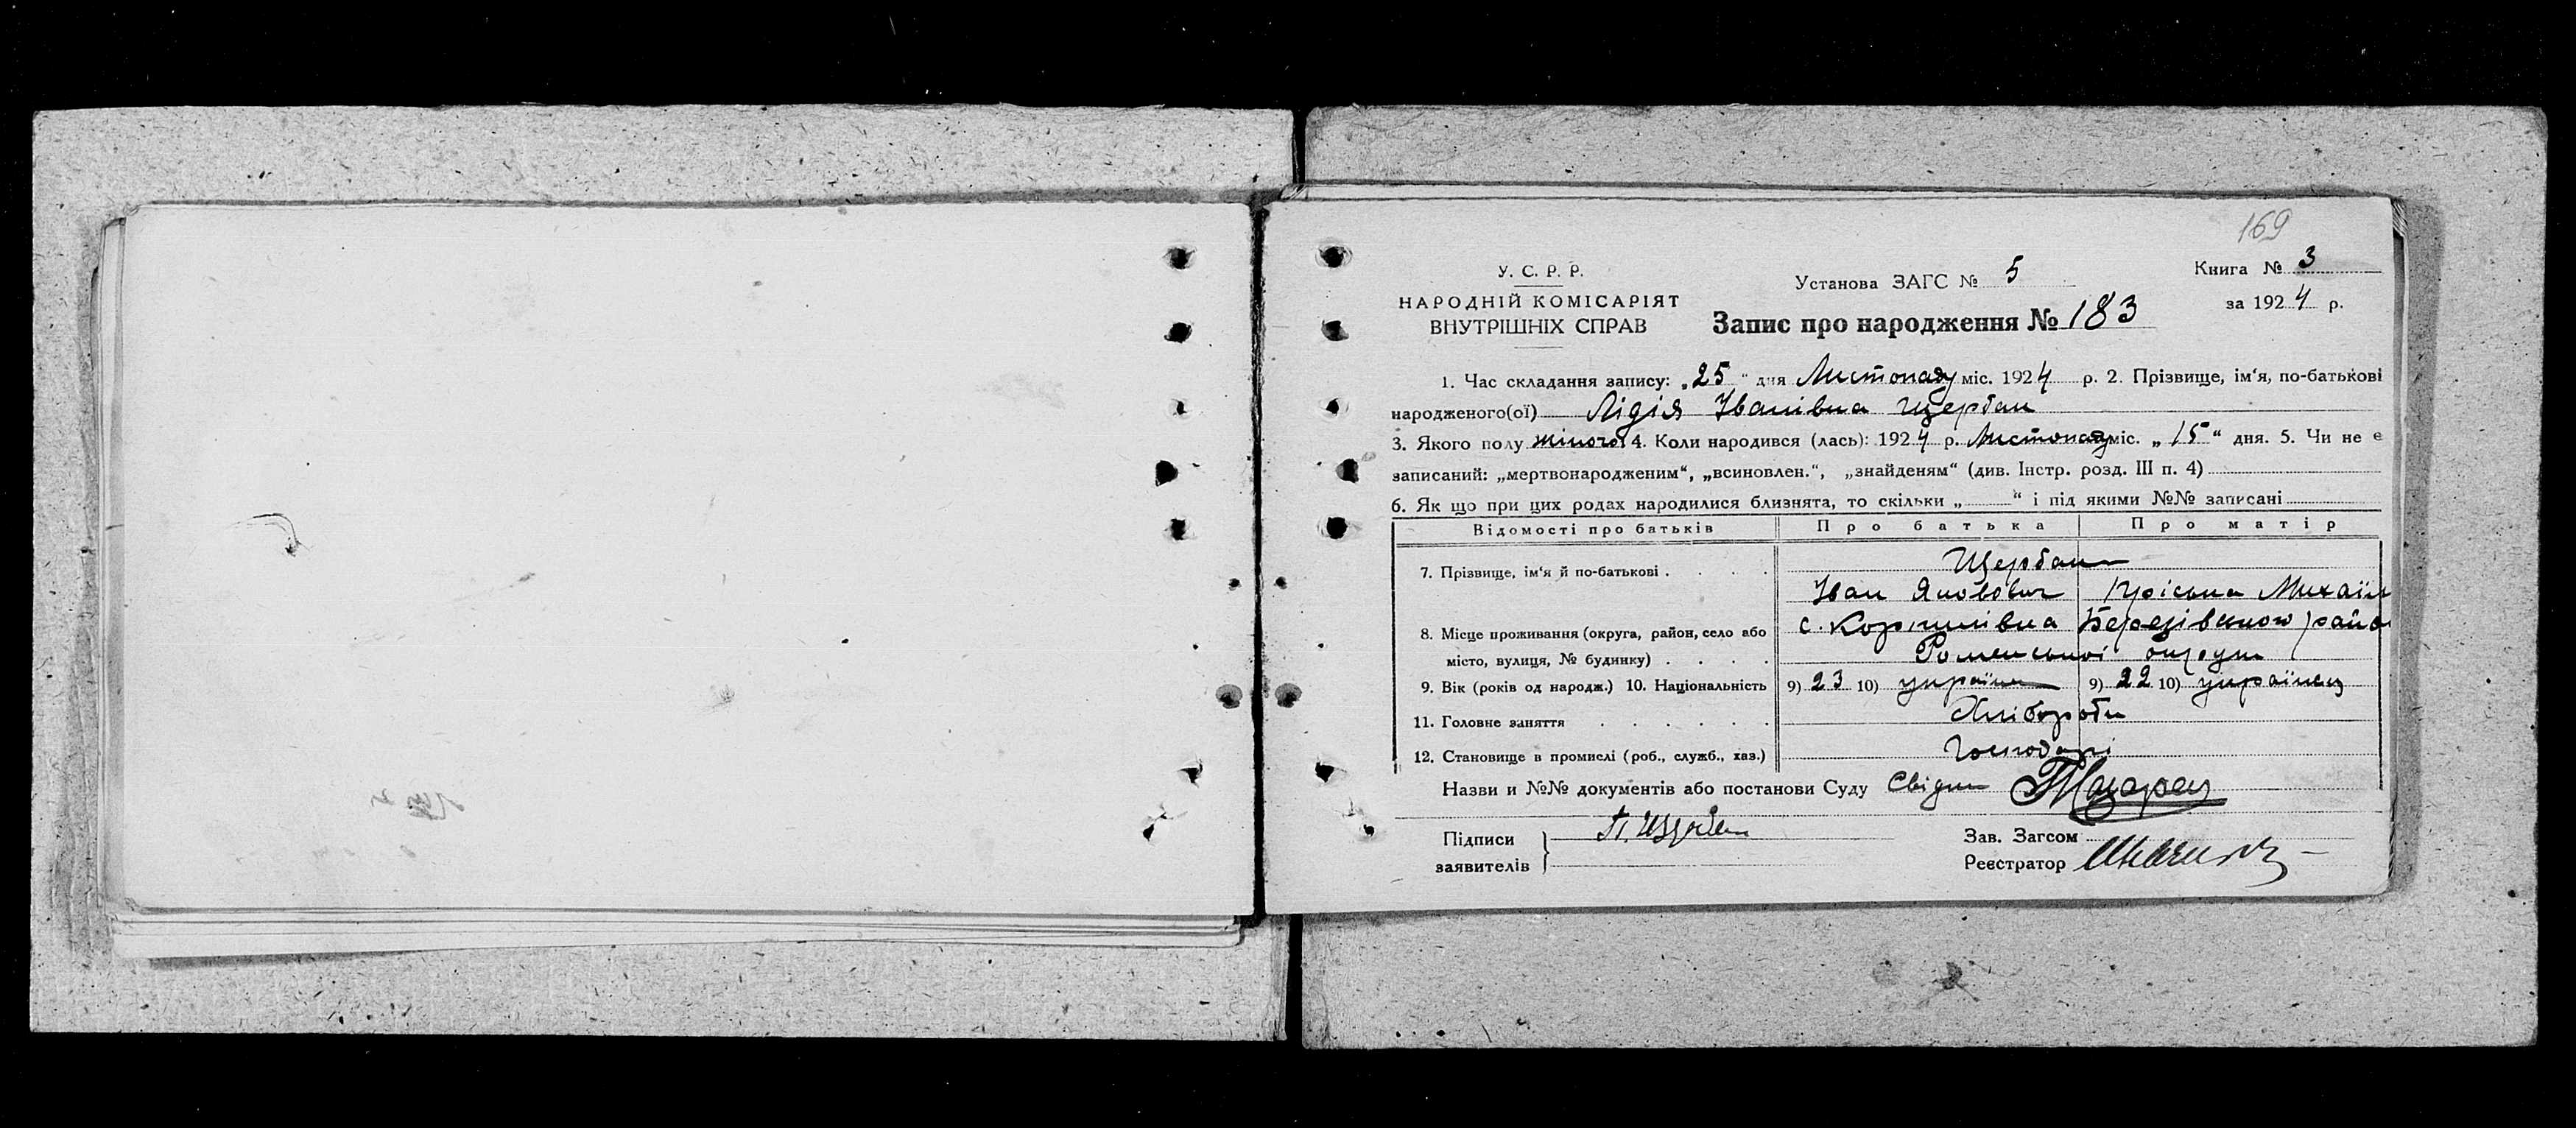 169
У. С. Р. Р.
НАРОДНІЙ КОМІСАРІЯТ
ВНУТРІШНІХ СПРАВ
Установа ЗАГС № 5
Запис про народження № 183
Книга № 3
за 1924 р.
1. Час складання запису: „25“ дня Листопаду міс. 1924 р. 2. Прізвище, ім'я, по-батькові
народженого(ої) Лідія Іванівна Щербак
3. Якого полу жіночої 4. Коли народився (лась): 1924 р. Листопаду міс. „15“ дня. 5. Чи не є
записаний: „мертвонародженим“, „всиновлен.“, „знайденям“ (див. Інстр. розд. III п. 4)
6. Як що при цих родах народилися близнята, то скільки „ “ і під якими №№ записані
Відомості про батьків Про батька Про матір
7. Прізвище, ім'я й по-батькові . . . . Щербаки
Іван Якович Михайл
8. Місце проживання (округа, район, село або с. Березівського район
місто, вулиця, № будинку) . . . . Роменської округи
9. Вік (років од народж.) 10. Національність 9) 23 10) україн 9) 22 10) українец
11. Головне заняття . . . . . . Хлібороби
12. Становище в промислі (роб., служб., хаз.) Господарі
Назви и №№ документів або постанови Суду Свідки
Підписи
заявителів
Зав. Загсом
Реєстратор